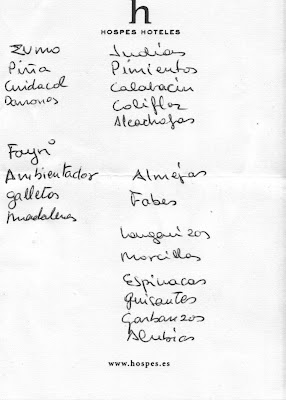 h
HOSPES HOTELES
Zumo Judías
Piña Pimientos
Cuidacol Calabacín
Danones Coliflor
Alcachofas
Fayri
Ambientador Almejas
galletas Fabes
Madalenas
Longanizos
Morcillas
Espinacas
guisantes
Garbanzos
Alubias
www.hospes.es